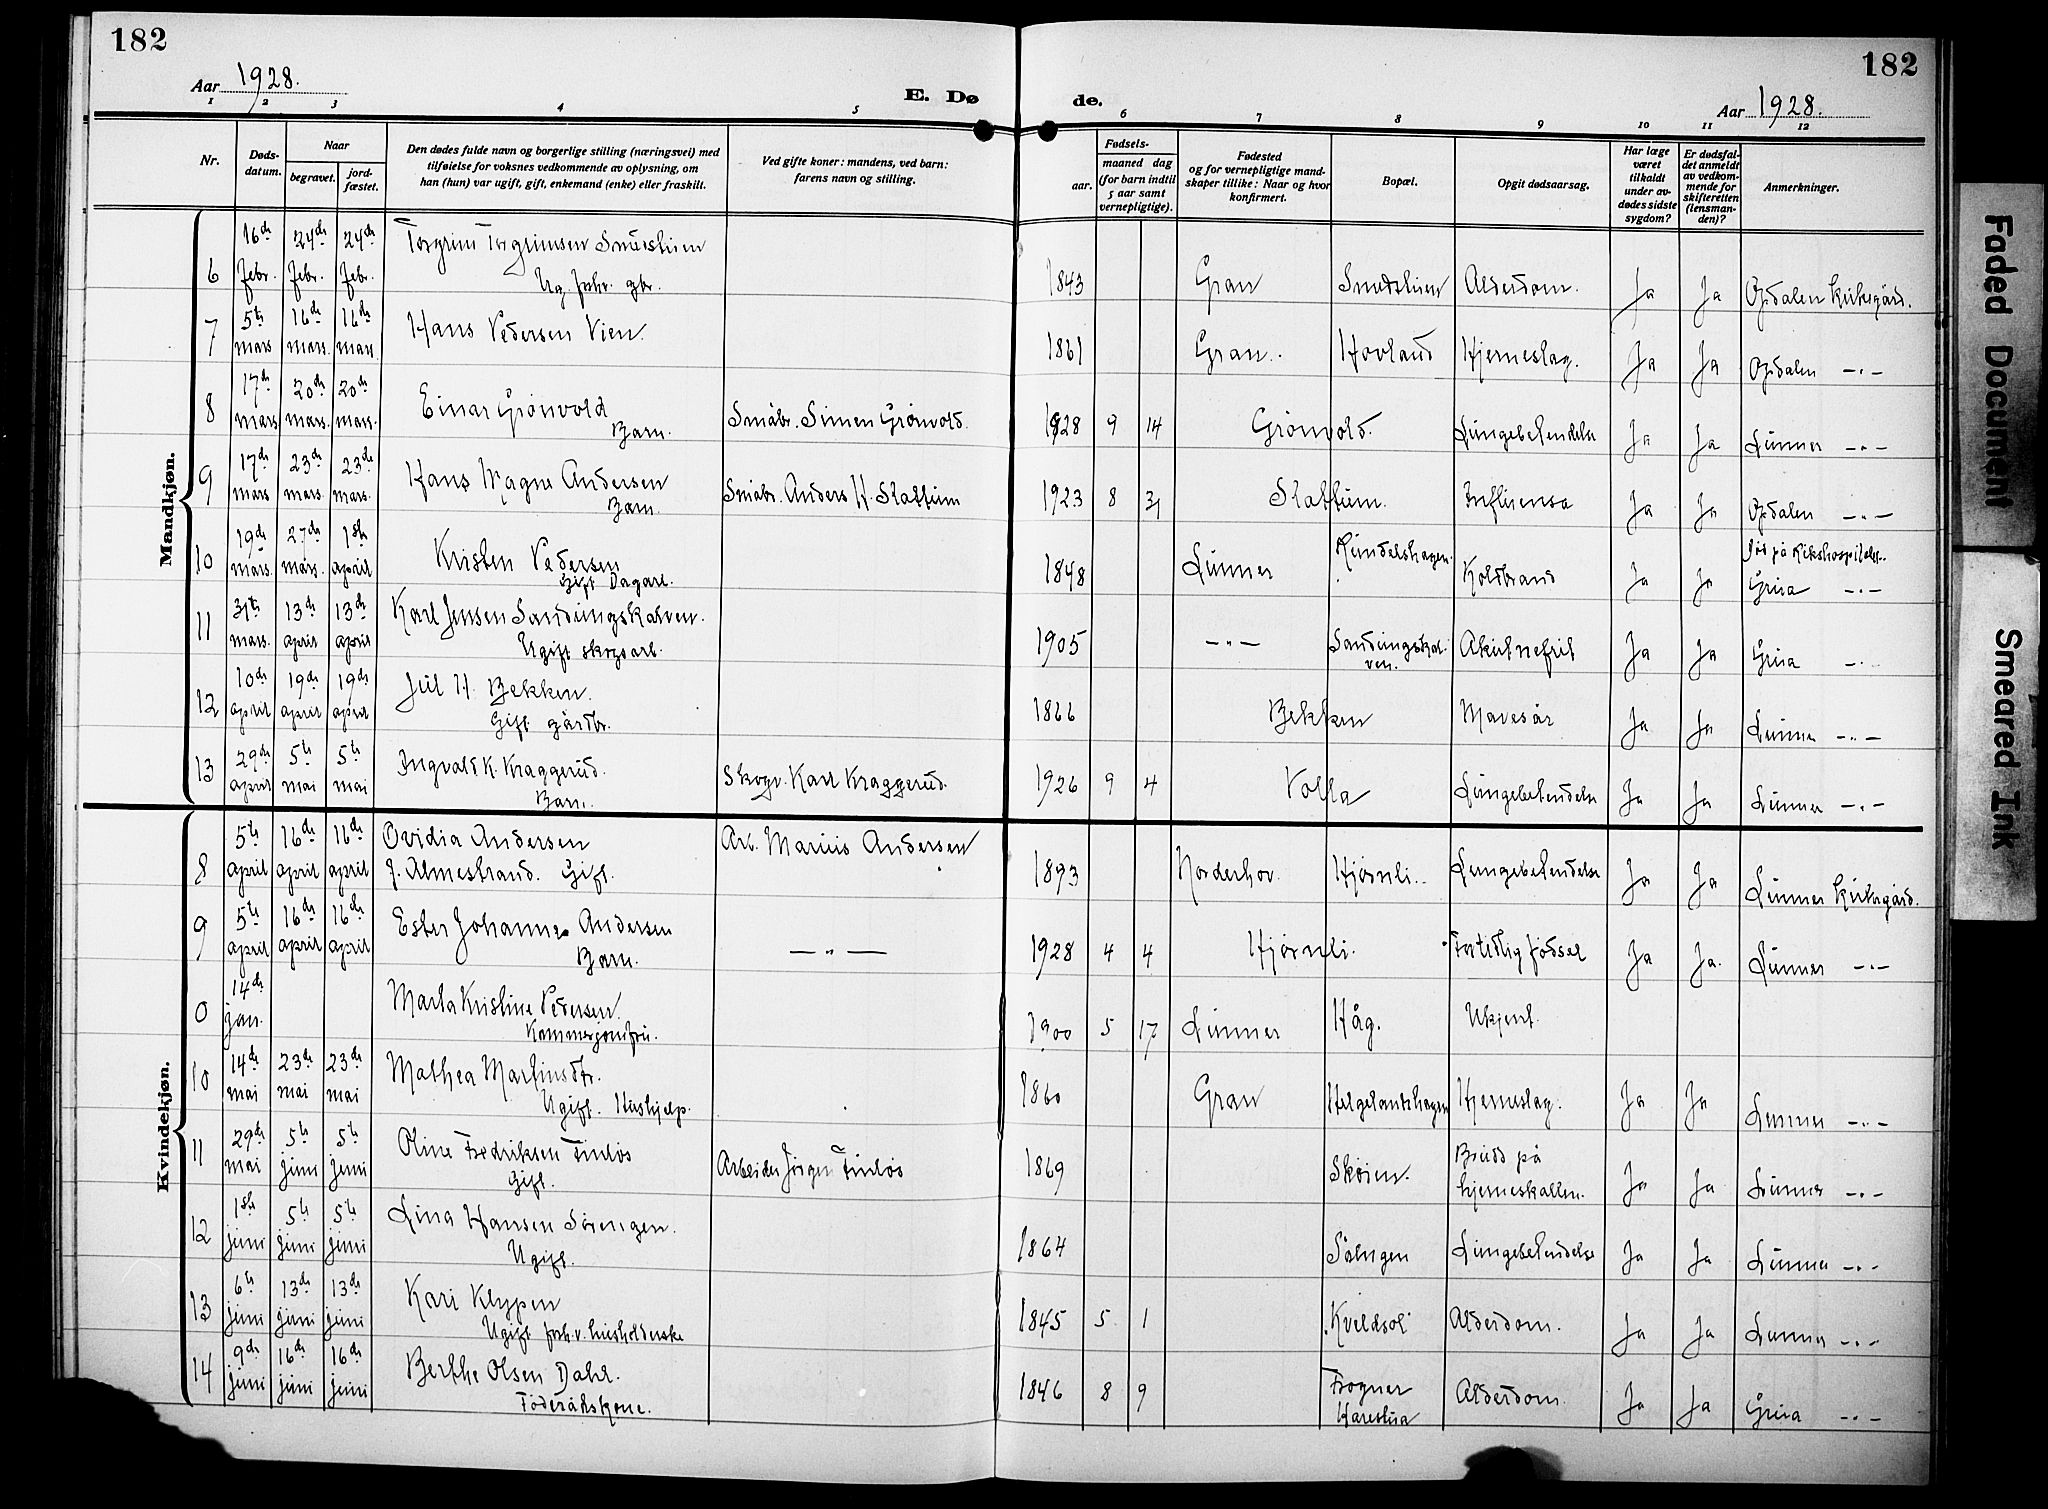 182
182
Aar 1928.
E. Døde.
Aar 1928.
1 2 3 4 5 6 7 8 9 10 11 12
Nr.
Døds-datum.
Naar
begravet.
jord-fæstet.
Den dødes fulde navn og borgerlige stilling (næringsvei) med
tilføielse for voksnes vedkommende av oplysning, om
han (hun) var ugift, gift, enkemand (enke) eller fraskilt.
Ved gifte koner: mandens, ved barn:
farens navn og stilling.
Fødsels-
aar.
maaned dag
(for barn indtil
5 aar samt
vernepligtige).
Fødested
og for vernepligtige mand-
skaper tillike: Naar og hvor
konfirmert.
Bopæl.
Opgit dødsaarsag.
Har læge
været
tilkaldt
under av-
dødes sidste
sygdom?
Er dødsfal-
det anmeldt
av vedkom-
mende for
skifteretten
(lensman-
den)?
Anmerkninger.
Mandkjøn.
6 16de febr. 24de febr. 24de febr. Torgrim Torgrimsen Smedshien Ug. forhv. gbr. 1843 Gran Smedshien Alderdom. Ja Ja Opdalen kirkegård.
7 5te mars 16de mars. 16de mars. Hans Pedersen Vien. 1861 Gran. Hovland Hjerneslag. Ja Ja Opdalen -"-
8 17de mars 20de mars. 20de mars. Einar Grönvold Barn. Småbr. Simen Grönvold. 1928 9 14 Grönvold. Lungebetendelse Ja Ja Lunner -"-
9 17de mars 23de mars. 23de mars. Hans Magne Andersen Barn. Småbr. Anders H. Slattum 1923 8 31 Slattum. Influensa Ja Ja Opdalen -"-
10 19de mars. 27de mars. 1ste april Kristen Pedersen Gift Dagarb. 1848 Lunner Rundelshagen. Koldbrand Ja Ja Död på Rikshospitalet. Grua -"-
11 31te mars. 13de april 13de april Karl Jensen Sandungskalven. Ugift skogsarb. 1905 -"- Sandungskalven. Akut nefrit Ja Ja Grua -"-
12 10de april 19de april 19de april Jul H. Bekken. Gift gårdbr. 1866 Bekken Mavesår Ja Ja Lunner -"-
13 29de april 5te mai 5te mai Ingvald K. Kraggerud. Barn. Skogv. Karl Kraggerud. 1926 9 4 Volla Lungebetendelse Ja Ja Lunner -"-
Kvindekjøn.
8 5te april 16de april 16de april Ovidia Andersen f. Almestrand. Gift. Arb. Marius Andersen 1893 Norderhov. Hjørnli. Lungebetendelse Ja Ja Lunner kirkegård.
9 5te april 16de april 16de april Ester Johanne Andersen Barn. -"- 1928 4 4 Hjørnli. Fortidlig födsel Ja Ja. Lunner -"-
0 14de jan. Marta Kristine Pedersen. Kammerjomfru. 1900 5 17 Lunner Håg. Ukjent.
10 14de mai 23de mai 23de mai Mathea Martinsdtr. Ugift. Hushjelp. 1860 Gran Helgelantshagen Hjerneslag. Ja Ja Lunner -"-
11 29de mai 5te juni 5te juni Oline Fredriksen Finløs Gift. Arbeider Jørgen Finløs 1869 Skøien. Brudd på hjerneskallen. Ja Ja Lunner -"-
12 1ste juni 5te juni 5te juni Lina Hansen Sørengen. Ugift. 1864 Lungebetendelse Ja Ja Lunner -"-
13 6te juni 13de juni 13de juni Kari Klypen Ugift forhv. husholderske 1845 5 1 Kveldsol Alderdom. Ja Ja Lunner -"-
14 9de juni 16de juni 16de juni Berthe Olsen Dahl. Föderådskone. 1846 8 9 Frogner Harestua Alderdom. Ja Ja Grua -"-
Faded Document
Smeared Ink